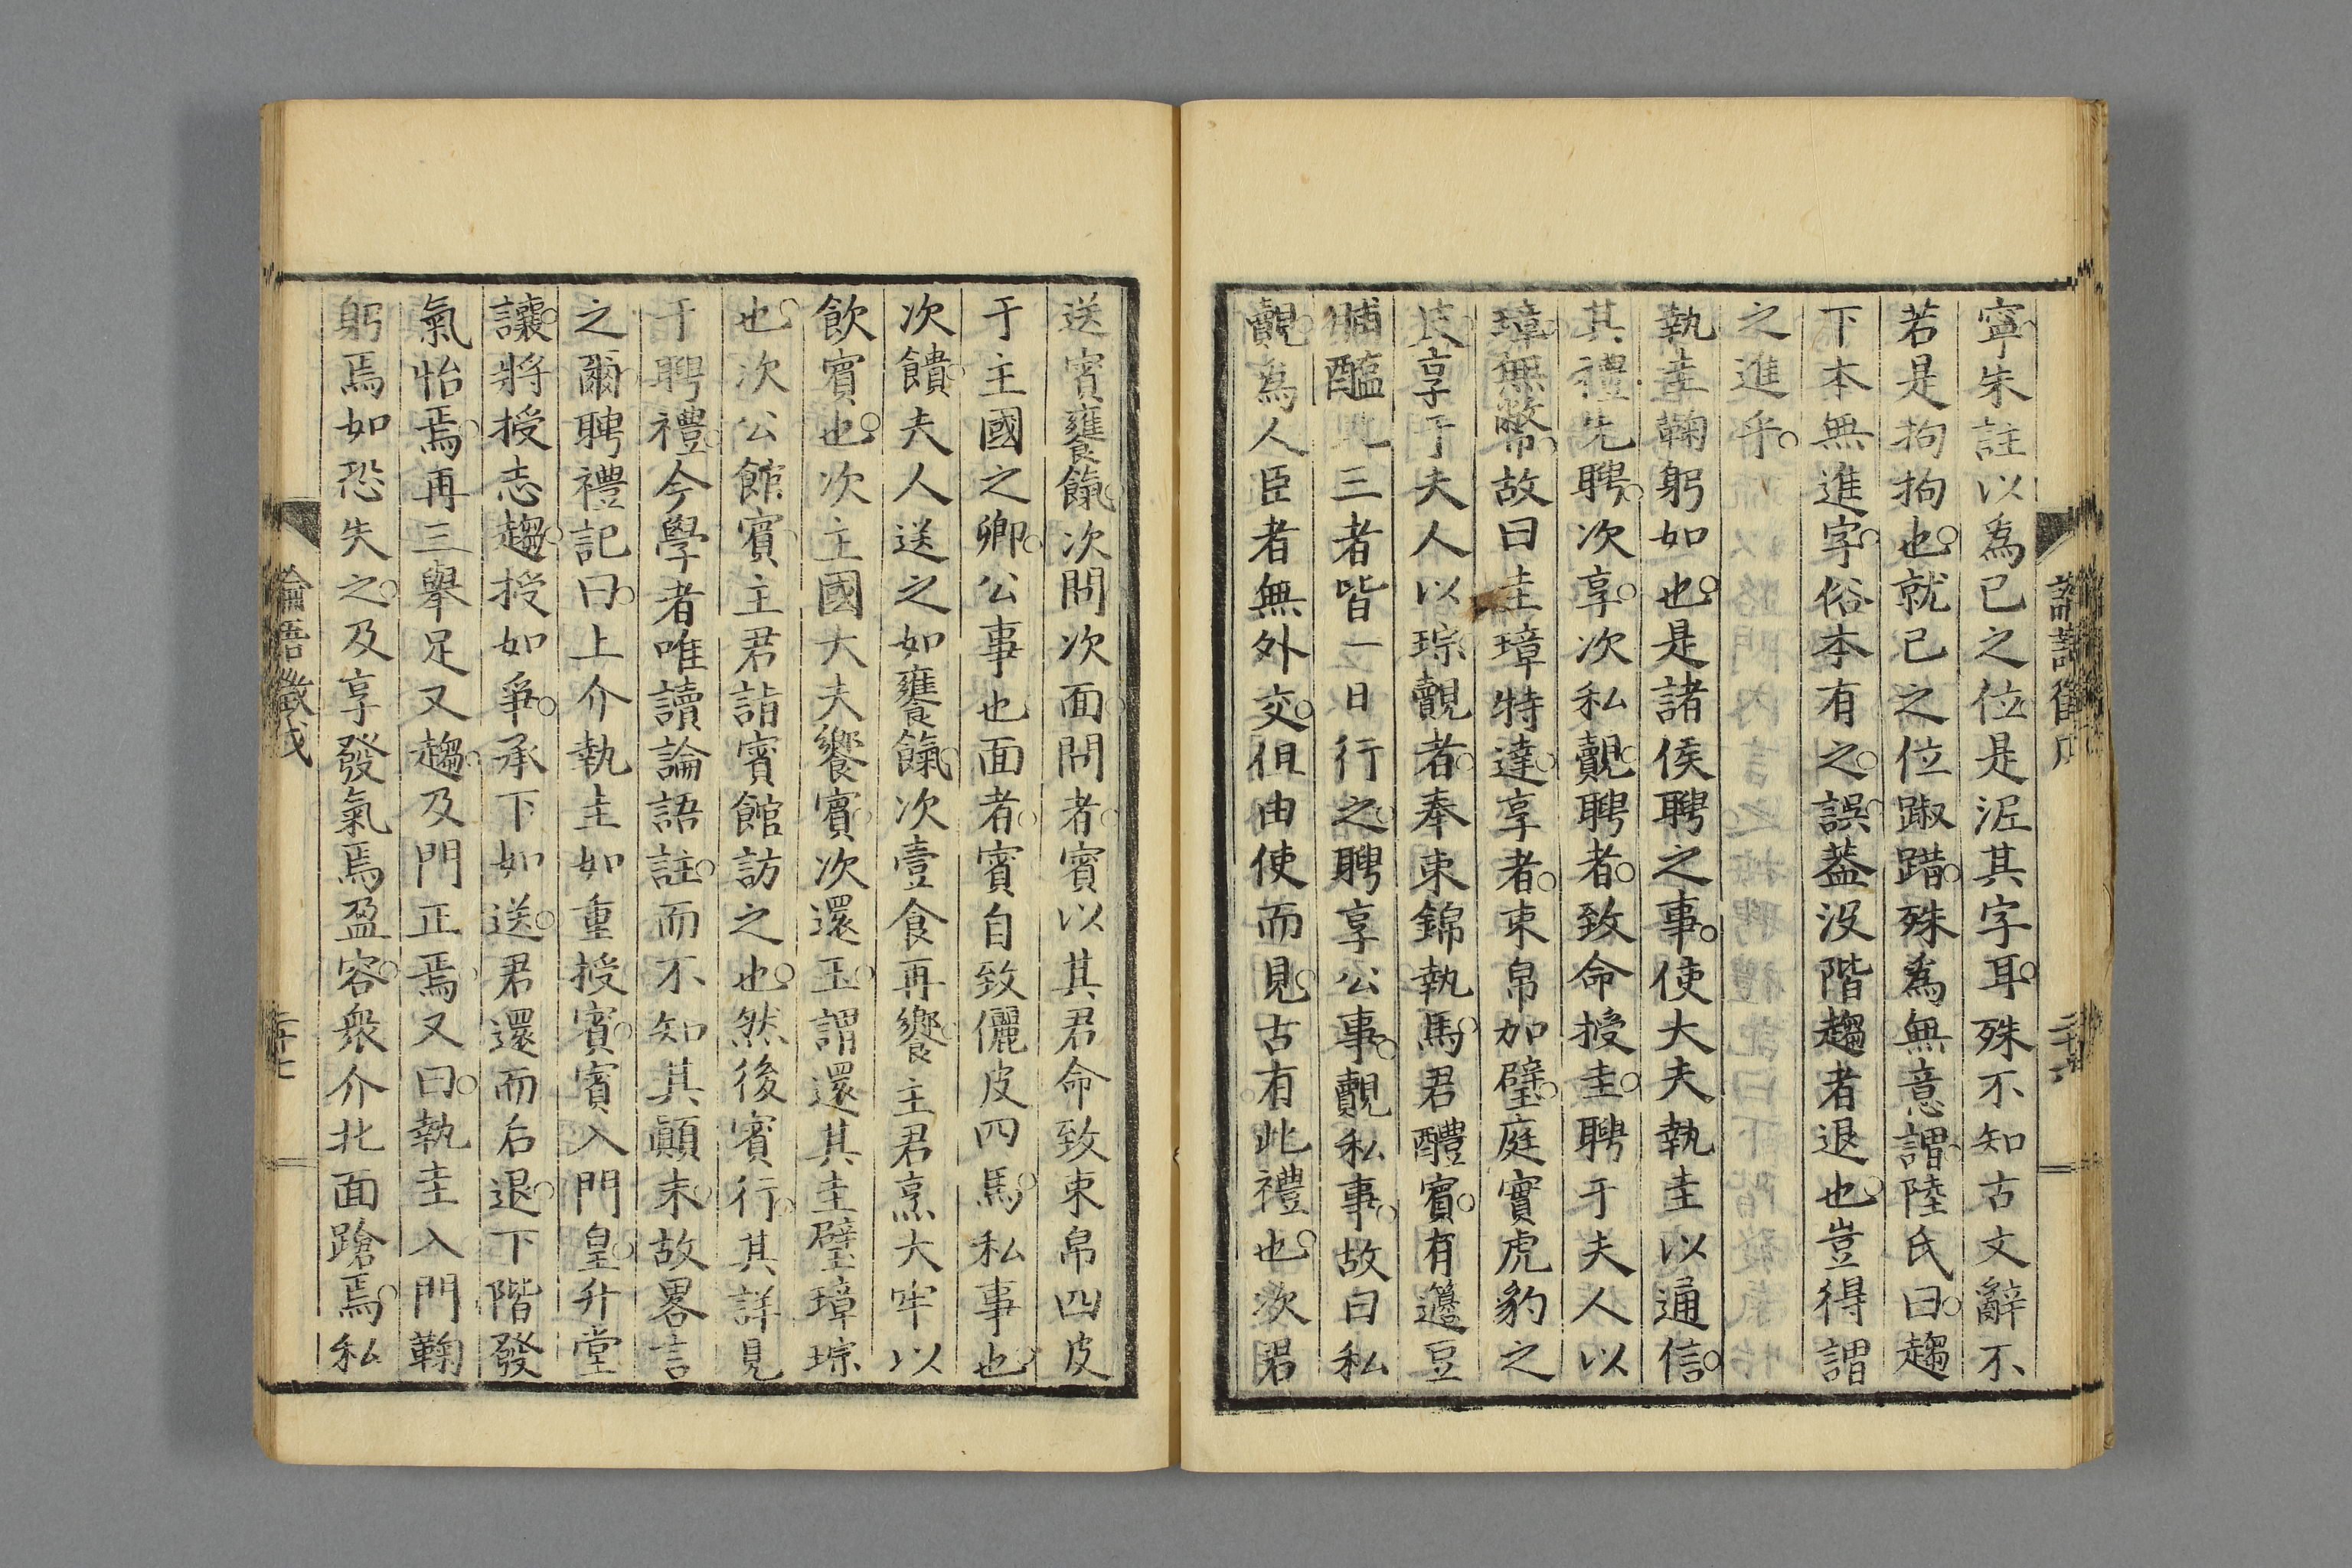 寧朱註以為已之位是泥其字耳殊不知古文辭不
若是拘拘也就已之位踧踖殊為無意謂陸氏曰趨
下本無進字俗本有之誤葢沒階趨者退也豈得謂
之進乎
執圭鞠躬如也是諸侯聘之事使大夫執圭以通信
其禮先聘次享次私覿聘者致命授圭聘于夫人以
璋無幣故曰圭璋特達享者束帛加璧庭實虎豹之
皮享于夫人以琮覿者奉束錦執馬君醴賓有籩豆
脯醢此三者皆一日行之聘享公事覿私事故曰私
覿為人臣者無外交但由使而見古有此禮也次君
送賓饔餼次問次面問者賓以其君命致束帛四皮
于主國之卿公事也面者賓自致儷皮四馬私事也
次饋夫人送之如饔餼次壹食再饗主君烹大牢以
飲賓也次主國大夫饗賓次還玉謂還其圭璧璋琮
也次公館賓主君詣賓館訪之也然後賓行其詳見
于聘禮今學者唯讀論語註而不知其顛末故畧言
之爾聘禮記曰上介執圭如重授賓賓入門皇升堂
讓將授志趨授如爭承下如送君還而后退下階發
氣怡焉再三舉足又趨及門正焉又曰執圭入門鞠
躬焉如恐失之及享發氣焉盈容衆介北面蹌焉私
論語徵戊
二十七